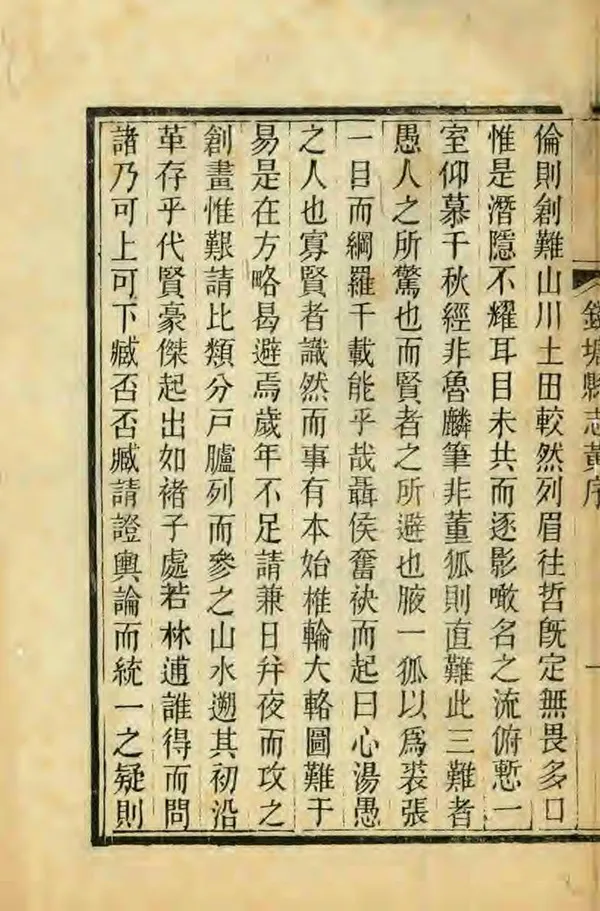 錢塘縣志黃序 一
倫則創難山川土田較然列眉往哲旣定無畏多口
惟是潛隱不耀耳目未共而逐影噉名之流俯慙一
室仰慕千秋經非魯麟筆非董狐則直難此三難者
愚人之所驚也而賢者之所避也腋一狐以爲裘張
一目而綱羅千載能乎哉聶侯奮袂而起曰心湯愚
之人也寡賢者識然而事有本始椎輪大輅圖難于
易是在方略曷避焉歲年不足請兼日幷夜而攻之
創畫惟艱請比類分戶臚列而參之山水遡其初沿
革存乎代賢豪傑起出如褚子處若林逋誰得而問
諸乃可上可下臧否否臧請證輿論而統一之疑則